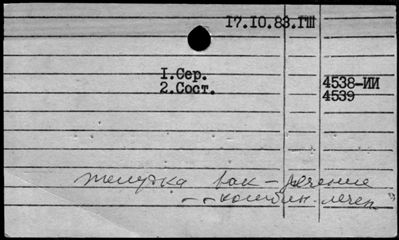 17.10.83.ГШ
1.Сер. 4538-ИИ
2.Сост. 4539
желудка рак - лечение
- - комбин. лечен.